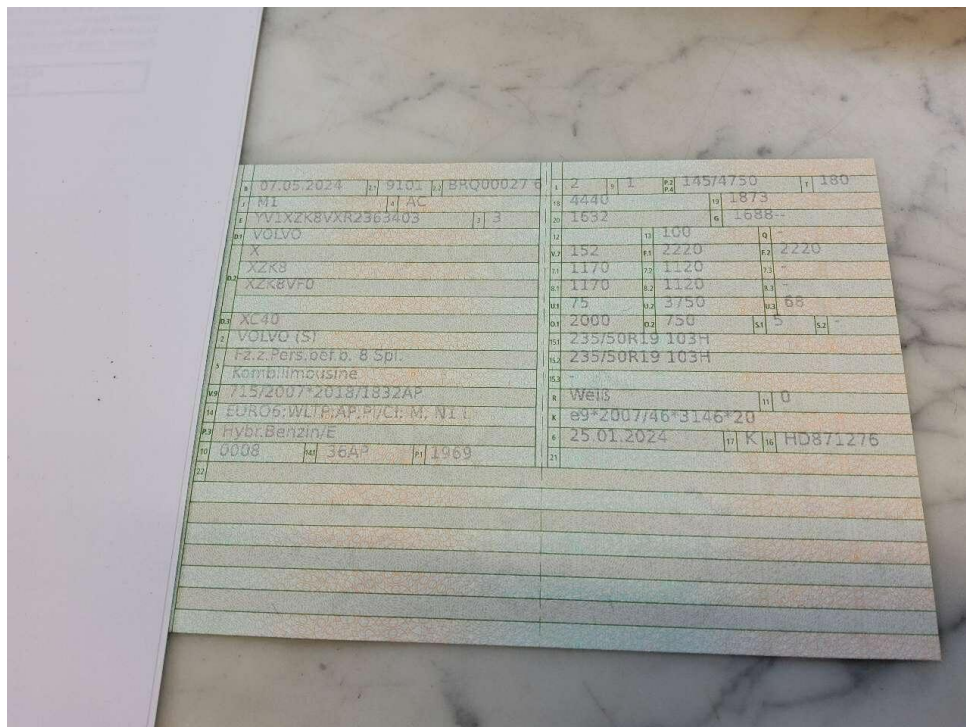 B 07.05.2024 2.1 9101 2.2 BRQ00027 6
J M1 4 AC
E YV1XZK8VXR2363403 3 3
D.1 VOLVO
X
D.2 XZK8
XZK8VF0
D.3 XC40
2 VOLVO (S)
5 Fz.z.Pers.bef.b. 8 Spl.
Kombilimousine
V.9 715/2007*2018/1832AP
14 EURO6;WLTP;AP;PI/CI; M, N1 I
P.3 Hybr.Benzin/E
10 0008 14.1 36AP P.1 1969
22
L 2 9 1 P.2 P.4 145/4750 T 180
18 4440 19 1873
20 1632 G 1688--
12 13 100 Q -
V.7 152 F.1 2220 F.2 2220
7.1 1170 7.2 1120 7.3 -
8.1 1170 8.2 1120 8.3 -
U.1 75 U.2 3750 U.3 68
O.1 2000 O.2 750 S.1 5 S.2 -
15.1 235/50R19 103H
15.2 235/50R19 103H
15.3 -
R Weiß 11 0
K e9*2007/46*3146*20
6 25.01.2024 17 K 16 HD871276
21